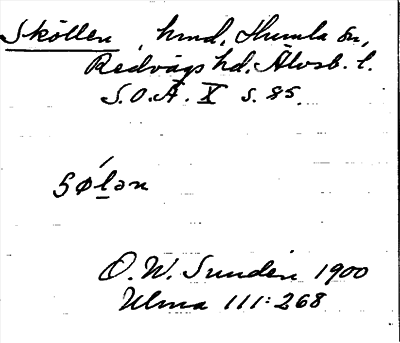 Sköllen, hmd, Humla sn,
Redvägs hd. Älvsb. l.
S.O.Ä. X s. 85.
Sǿlən
O. W. Sundén 1900
Ulma 111:268